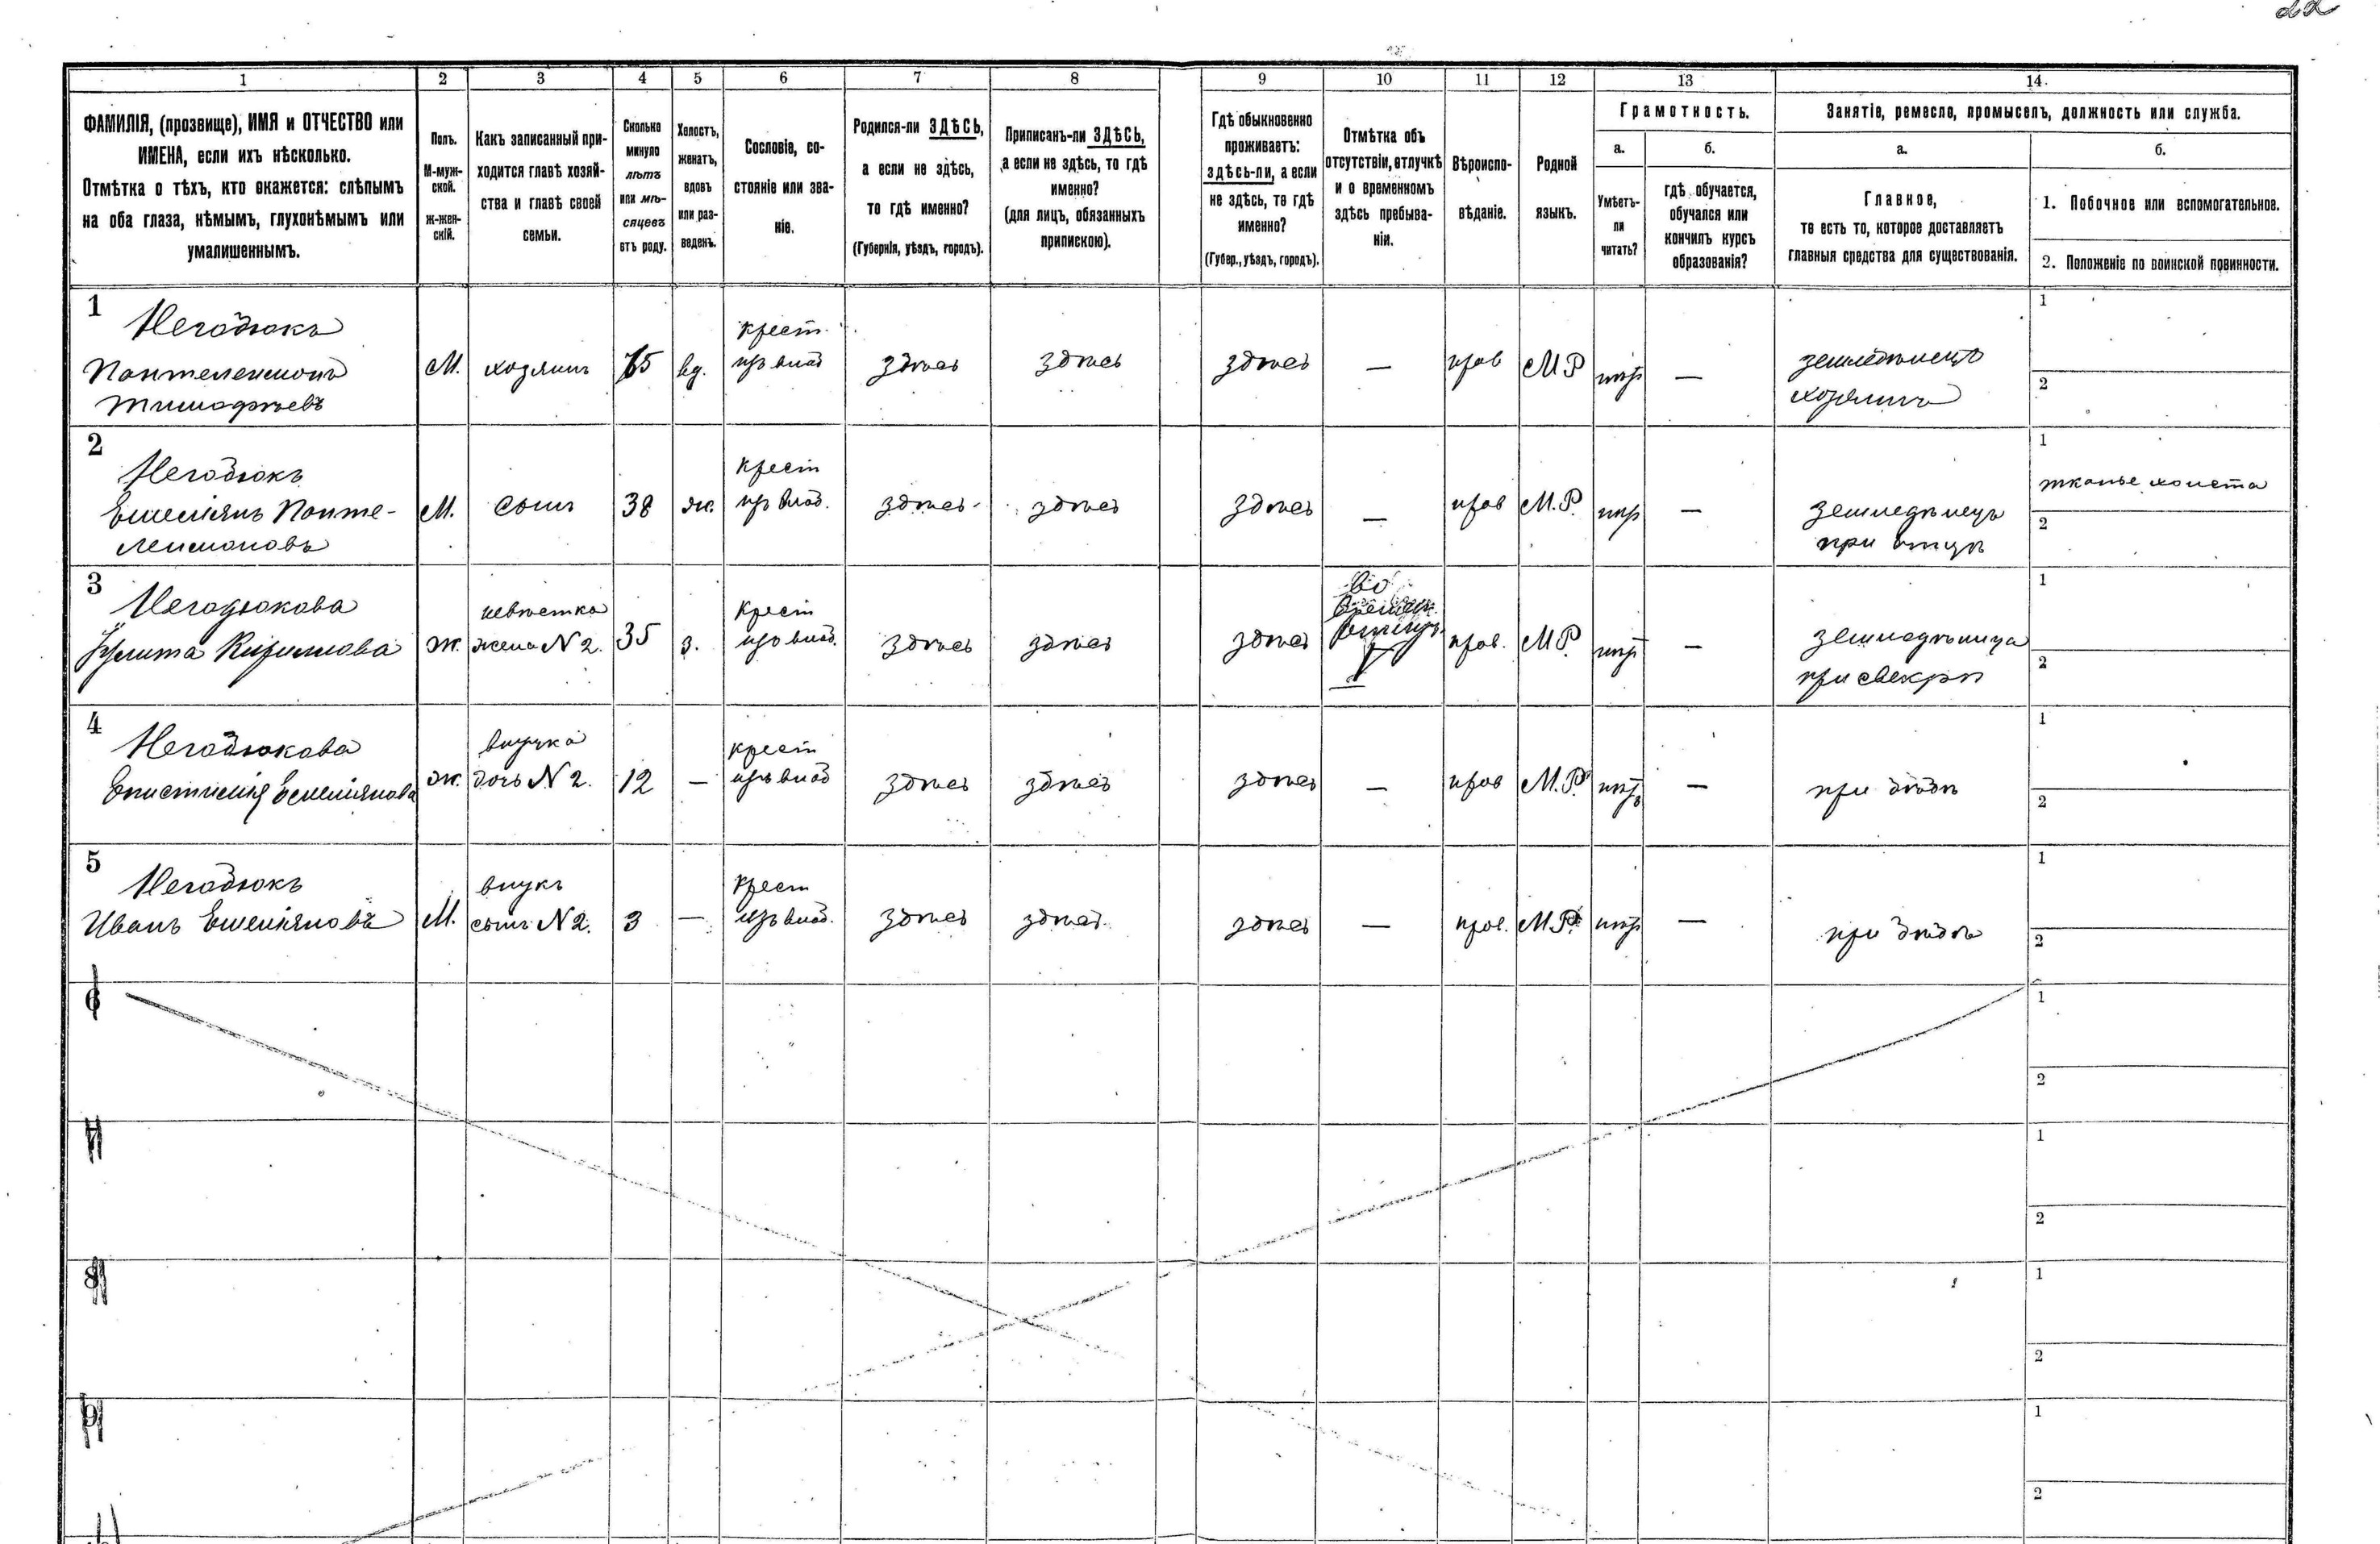 22
1 2 3 4 5 6 7 8 9 10 11 12 13 14.
ФАМИЛІЯ, (прозвище), ИМЯ и ОТЧЕСТВО или
ИМЕНА, если ихъ нѣсколько.
Отмѣтка о тѣхъ, кто окажется: слѣпымъ
на оба глаза, нѣмымъ, глухонѣмымъ или
умалишеннымъ.
Полъ.
М-муж-
ской.
ж-жен-
скій.
Какъ записанный при-
ходится главѣ хозяй-
ства и главѣ своей
семьи.
Сколько
минуло
лѣтъ
или мѣ-
сяцевъ
отъ роду.
Холостъ,
женатъ,
вдовъ
или раз-
веденъ.
Сословіе, со-
стояніе или зва-
ніе.
Родился-ли ЗДѢСЬ,
а если не здѣсь,
то гдѣ именно?
(Губернія, уѣздъ, городъ).
Приписанъ-ли ЗДѢСЬ,
а если не здѣсь, то гдѣ
именно?
(для лицъ, обязанныхъ
припискою).
Гдѣ обыкновенно
проживаетъ:
здѣсь-ли, а если
не здѣсь, то гдѣ
именно?
(Губер., уѣздъ, городъ).
Отмѣтка объ
отсутствіи, отлучкѣ
и о временномъ
здѣсь пребыва-
ніи.
Вѣроиспо-
вѣданіе.
Родной
языкъ.
Грамотность.
а.
Умѣетъ-
ли
читать?
б.
гдѣ обучается,
обучался или
кончилъ курсъ
образованія?
Занятіе, ремесло, промыселъ, должность или служба.
а.
Главное,
то есть то, которое доставляетъ
главныя средства для существованія.
б.
1. Побочное или вспомогательное.
2. Положеніе по воинской повинности.
1
Негодюкъ
Пантелеимонъ
Тимофѣевъ
М.
хозяинъ
75
вд.
крест.
изъ влад
здѣсь
здѣсь
здѣсь
—
прав
М Р
—
земледѣлецъ
хозяинъ
1
2
2
Негодюкъ
Емеліянъ Панте-
леимоновъ
М.
сынъ
38
ж.
крест
изъ влад.
здѣсь
здѣсь
здѣсь
—
прав
М.Р.
—
земледѣлецъ
при отцѣ
1
тканье холста
2
3
Негодюкова
Кирилова
ж.
невѣстка
жена N 2.
35
з.
крест
изъ влад.
здѣсь
здѣсь
здѣсь
прав.
М Р.
—
земледѣлица
при свекрѣ
1
2
4
Негодюкова
Епистимія Емеліянова
ж.
внучка
дочь N 2.
12
—
крест
изъ влад
здѣсь
здѣсь
здѣсь
—
прав
М.Р.
—
при дѣдѣ
1
2
5
Негодюкъ
Иванъ Емеліяновъ
М.
внукъ
сынъ N 2.
3
—
крест
изъ влад.
здѣсь
здѣсь
здѣсь
—
прав.
М.Р.
—
при дѣдѣ
1
2
6
1
2
7
1
2
8
1
2
9
1
2